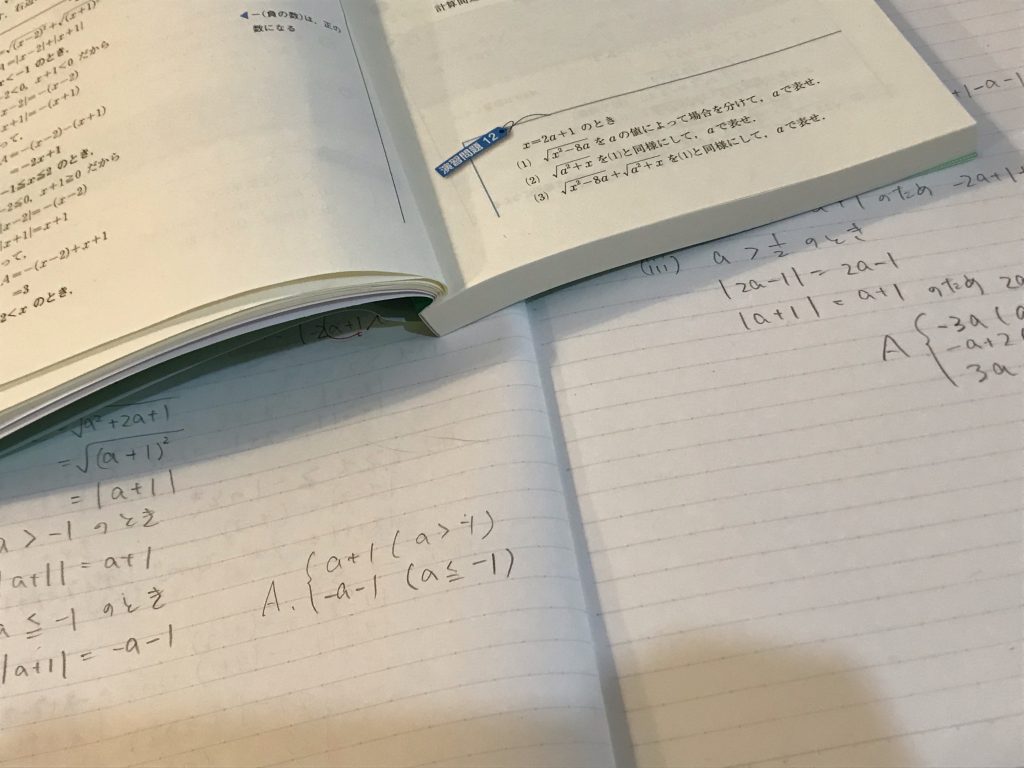 =√(x-2)²+√(x+1)²
A=|x-2|+|x+1|
x<-1 のとき,
-2<0, x+1<0 だから
x-2|=-(x-2)
x+1|=-(x+1)
って,
A=-(x-2)-(x+1)
=-2x+1
-1≦x≦2 のとき,
-2≦0, x+1≧0 だから
x-2|=-(x-2)
x+1|=x+1
って,
A=-(x-2)+x+1
=3
2<x のとき,
◀-(負の数)は, 正の
数になる
計算問
演習問題 12
x=2a+1 のとき
(1) √x²-8a を a の値によって場合を分けて, a で表せ.
(2) √a²+x を(1)と同様にして, a で表せ.
(3) √x²-8a+√a²+x を(1)と同様にして, a で表せ.
√a²+2a+1
=√(a+1)²
=|a+1|
a>-1 のとき
|a+1|=a+1
a≦-1 のとき
|a+1|=-a-1
A. { a+1 (a>-1)
-a-1 (a≦-1)
+1-a-1
a+1 のため -2a+1+
(iii) a>1/2 のとき
|2a-1|=2a-1
|a+1|=a+1 のため 2a
A { -3a (a
-a+2
3a